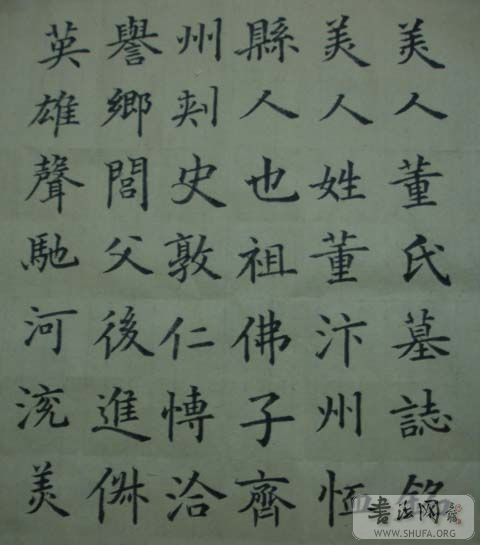 美人董氏墓誌銘
美人姓董汴州恤
縣人也祖佛子齊
州刾史敦仁愽洽
譽鄉閭父後進俶
英雄聲馳河渷美
書法網
WWW.SHUFA.ORG